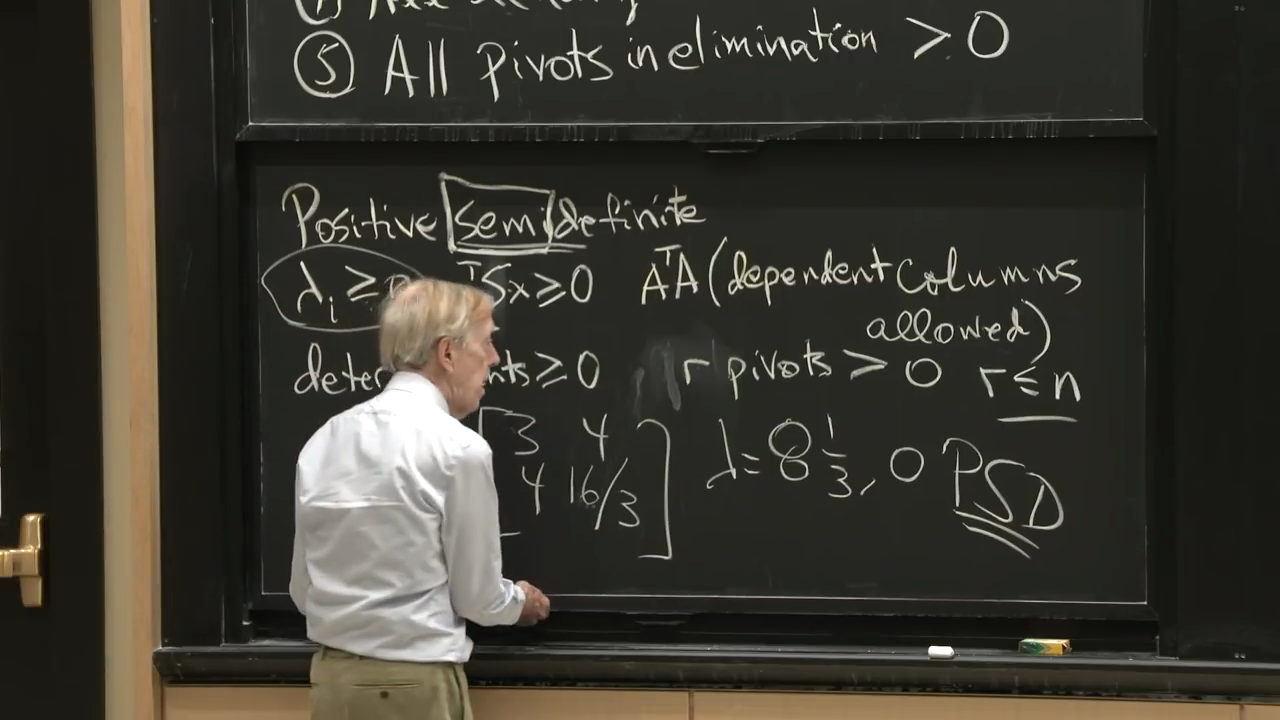 ⑤ All pivots in elimination > 0
Positive semidefinite
λᵢ ≥ ᵀSx ≥ 0 AᵀA (dependent columns
allowed)
≥ 0 r pivots > 0 r ≤ n
3 4
λ = 8 1/3, 0 PSD
4 16/3